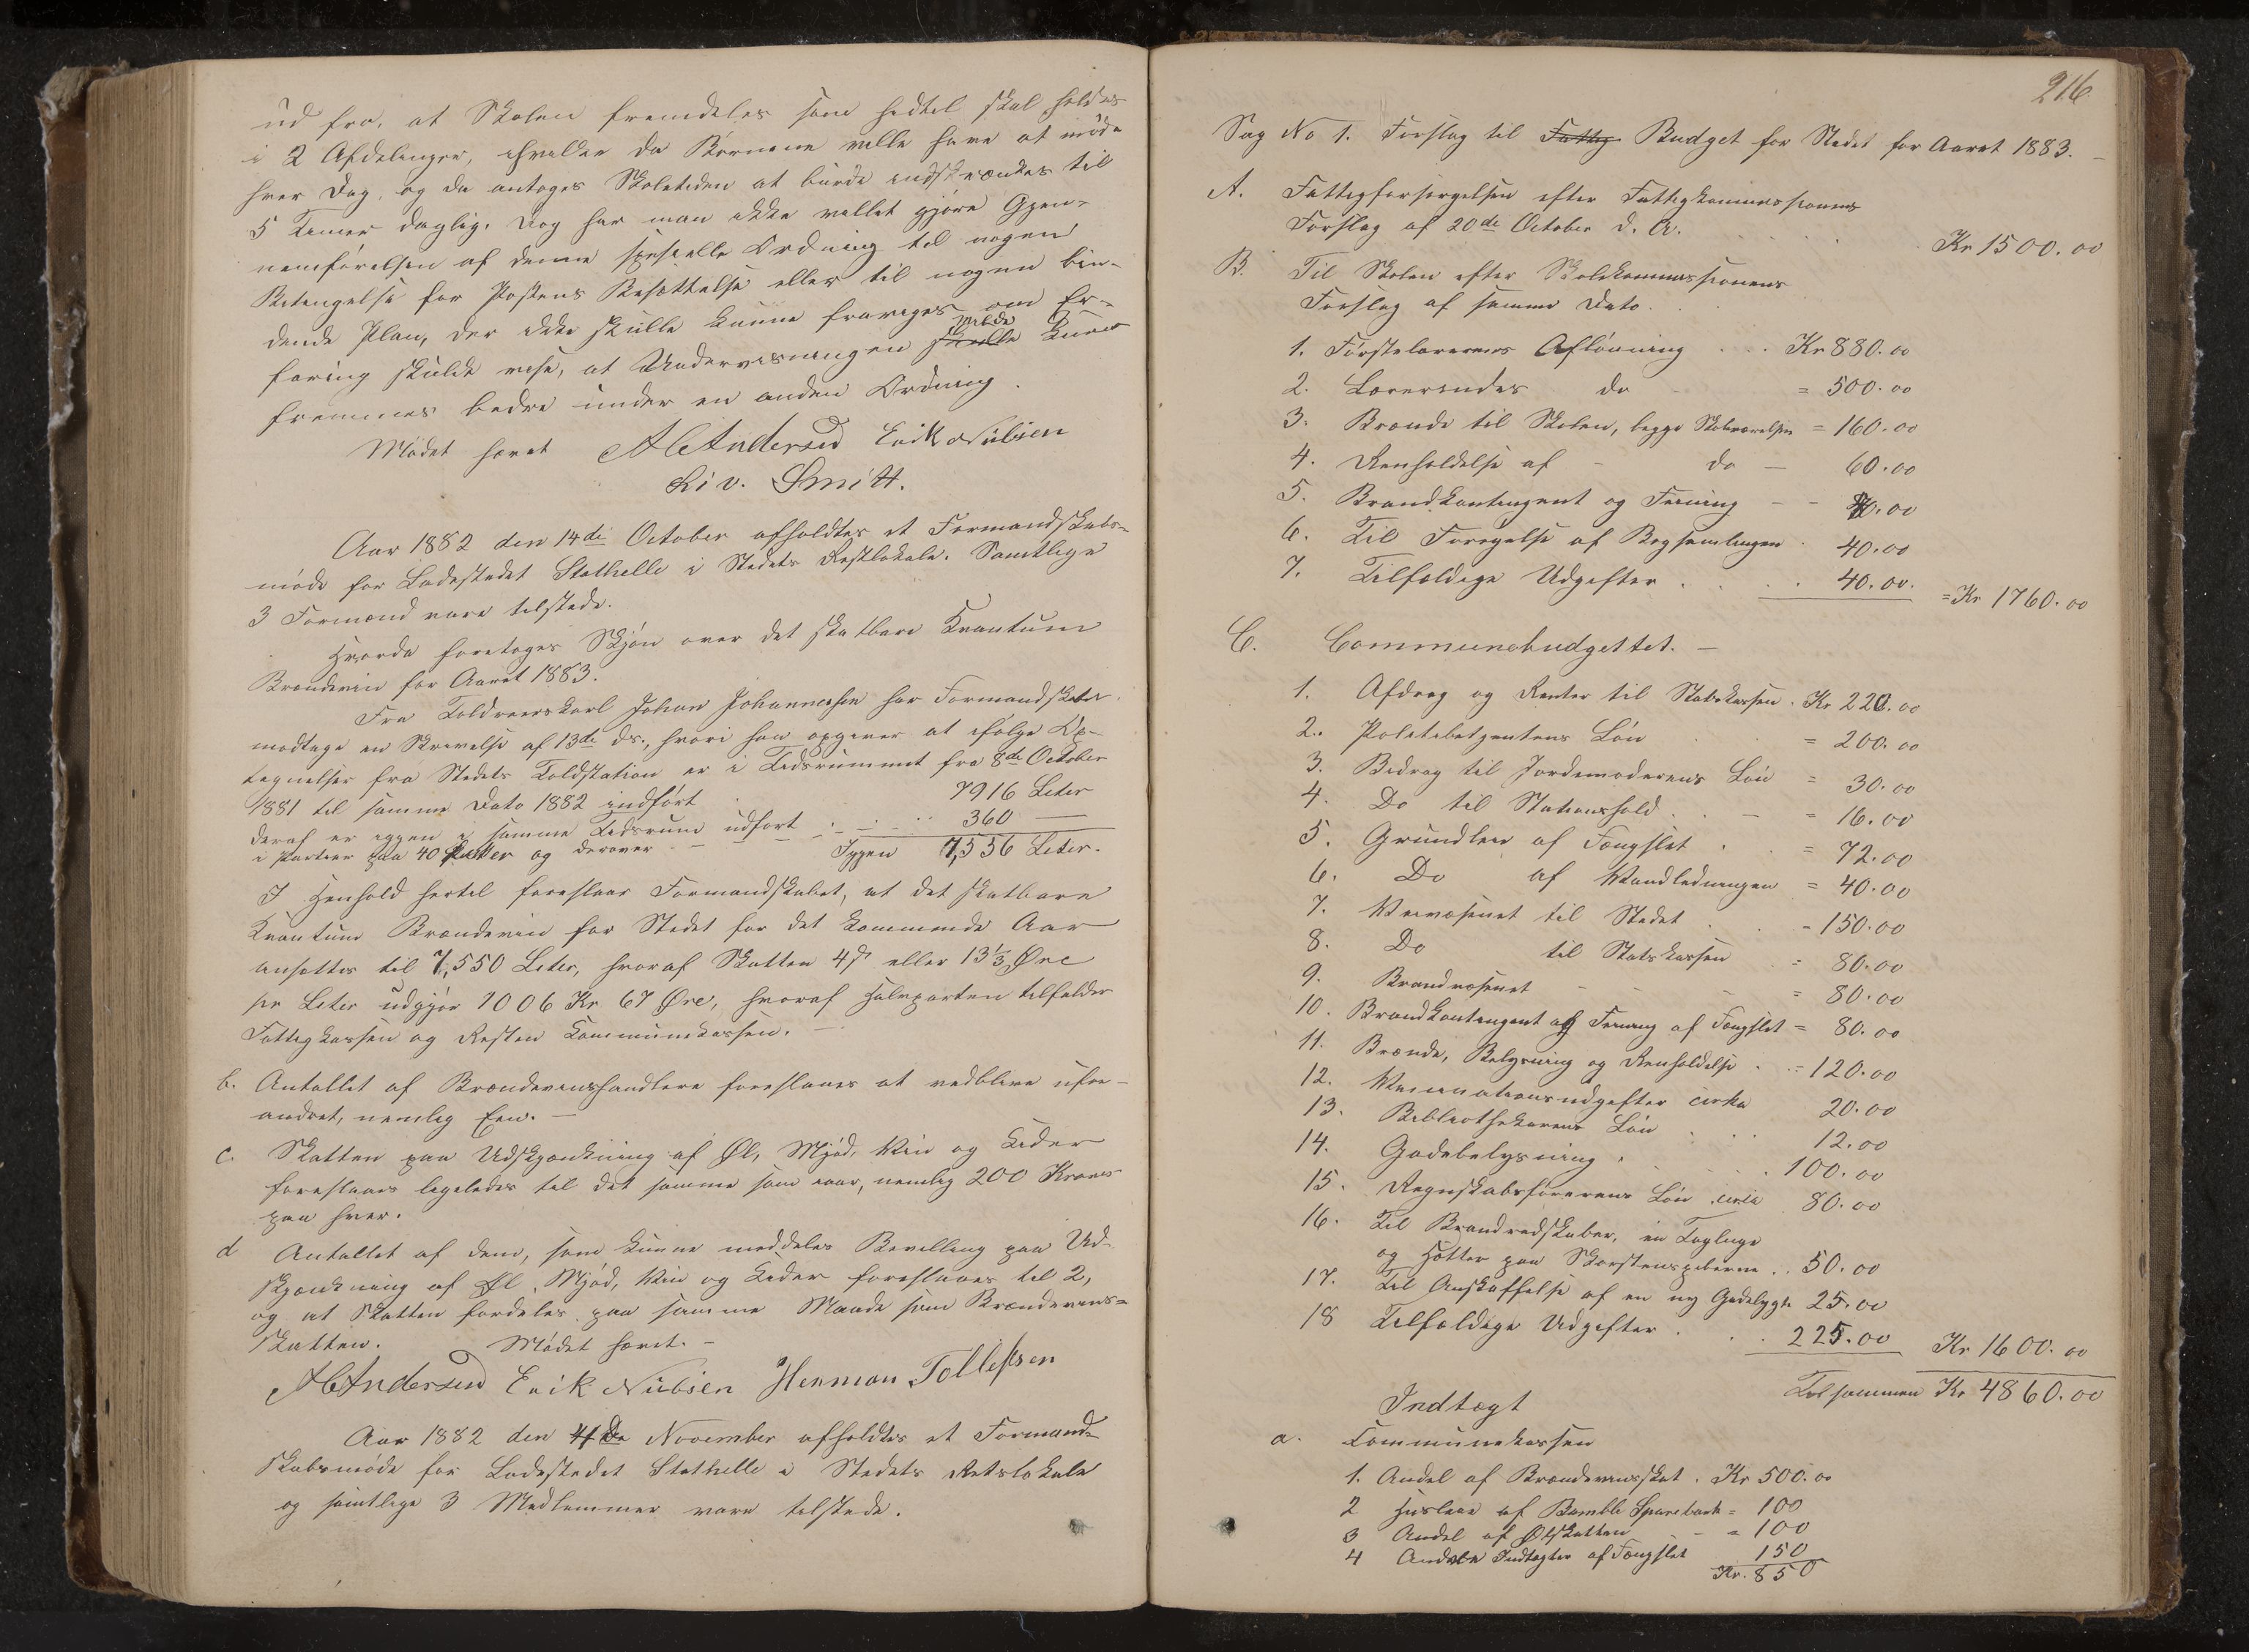 ud fra, at Skolen fremdeles som hidtil skal holdes
i 2 Afdelinger, i hvilke da Børnene ville have at møde
hver Dag, og da antages Skoletiden at burde indskrænkes til
5 Timer daglig. Dog har man ikke villet gjøre Gjen-
nemførelsen af denne specielle Ordning til nogen
Betingelse for Postens Besættelse eller til nogen bin-
dende Plan, der ikke skulle kunne fraviges om Er-
faring skulde vise, at Undervisningen vilde kunne
fremmes bedre under en anden Ordning.
Mødet hævet A C Andersen Erik Nielsen
Chr. Smitt.
Aar 1882 den 14de October afholdtes et Formandskabs-
møde for Ladestedet Stathelle i Stedets Retslokale. Samtlige
3 Formænd vare tilstede.
Hvorda foretoges Skjøn over det skatbare Kvantum
Brændevin for Aaret 1883.
Fra Toldroerskarl Johan Johannesen har Formandskabet
modtage en Skrivelse af 13de ds., hvori han opgiver at ifølge Op-
tegnelser fra Stedets Toldstation er i Tidsrummet fra 8de October
1881 til samme Dato 1882 indført 7916 Liter
deraf er igjen i samme Tidsrum udført 360 —
i Partier paa 40 Potter og derover Igjen 7,556 Liter.
I Henhold hertil foreslaar Formandskabet, at det skatbare
Kvantum Brændevin for Stedet for det kommende Aar
ansættes til 7,550 Liter, hvoraf Skatten 4 ß eller 13 1/3 Øre
pr Liter udgjør 1006 Kr 67 Øre, hvoraf Halvparten tilfalder
Fattigkassen og Resten Communekassen. —
b. Antallet af Brændevinshandlere foreslaaes at vedblive ufor-
andret, nemlig Een. —
c. Skatten paa Udskjænkning af Øl, Mjød, Vin og Cider
foreslaaes ligeledes til det samme som iaar, nemlig 200 Kroner
paa hver.
d Antallet af dem, som kunne meddeles Bevilling paa Ud-
skjænkning af Øl, Mjød, Vin og Cider foreslaaes til 2,
og at Skatten fordeles paa samme Maade som Brændevins-
skatten. Mødet hævet. —
A C Andersen Erik Nielsen Herman Tollefsen
Aar 1882 den 4de November afholdtes et Formand-
skabsmøde for Ladestedet Stathelle i Stedets Retslokale
og samtlige 3 Medlemmer vare tilstede.
216
Sag No 1. Forslag til Fattig Budget for Stedet for Aaret 1883. —
A. Fattigforsørgelsen efter Fattigkommissionens
Forslag af 20de October d. A. Kr 1500.00
B. Til Skolen efter Skolekommissionens
Forslag af samme Dato.
1. Førstelærerens Aflønning . . . Kr 880.00
2. Lærerindes do = 500.00
3. Brænde til Skolen, begge Skoleværelser = 160.00
4. Renholdelse af - do — 60.00
5. Brandkontingent og Feining - - 80.00
6. Til Forøgelse af Bogsamlingen . 40.00
7. Tilfældige Udgifter . . . . 40.00. = Kr 1760.00
C. Communebudgettet. —
1. Afdrag og Renter til Statskassen . Kr 220.00
2. Politibetjentens Løn = 200.00
3. Bidrag til Jordemoderens Løn = 30.00
4. Do til Stationshold . — = 16.00
5. Grundleie af Fængslet . = 72.00
6. Do af Vandledningen = 40.00
7. Veivæsenet til Stedet . - 150.00
8. Do til Statskassen = 80.00
9. Brandvæsenet - - - = 80.00
10. Brandkontingent og Feining af Fængslet = 80.00
11. Brænde, Belysning og Renholdelse . = 120.00
12. Vaccinationsudgifter cirka 20.00
13. Bibliothekarens Løn . . . 12.00
14. Gadebelysning . . . . 100.00
15. Regnskabsførerens Løn circa 80.00
16. Til Brandredskaber, en Tagluge
og Hatter paa Skorstenspiberne . . 50.00
17. Til Anskaffelse af en ny Gadelygte 25.00
18 Tilfældige Udgifter . . . 225.00 Kr 1600.00
Tilsammen Kr 4860.00
Indtægt
a. Communekassen
1. Andel af Brændevinsskat . Kr 500.00
2 Husleie af Bamble Sparebank = 100
3 Andel af Ølskatten - - = 100
4 Andre Indtægter af Fængslet 150
Kr. 850